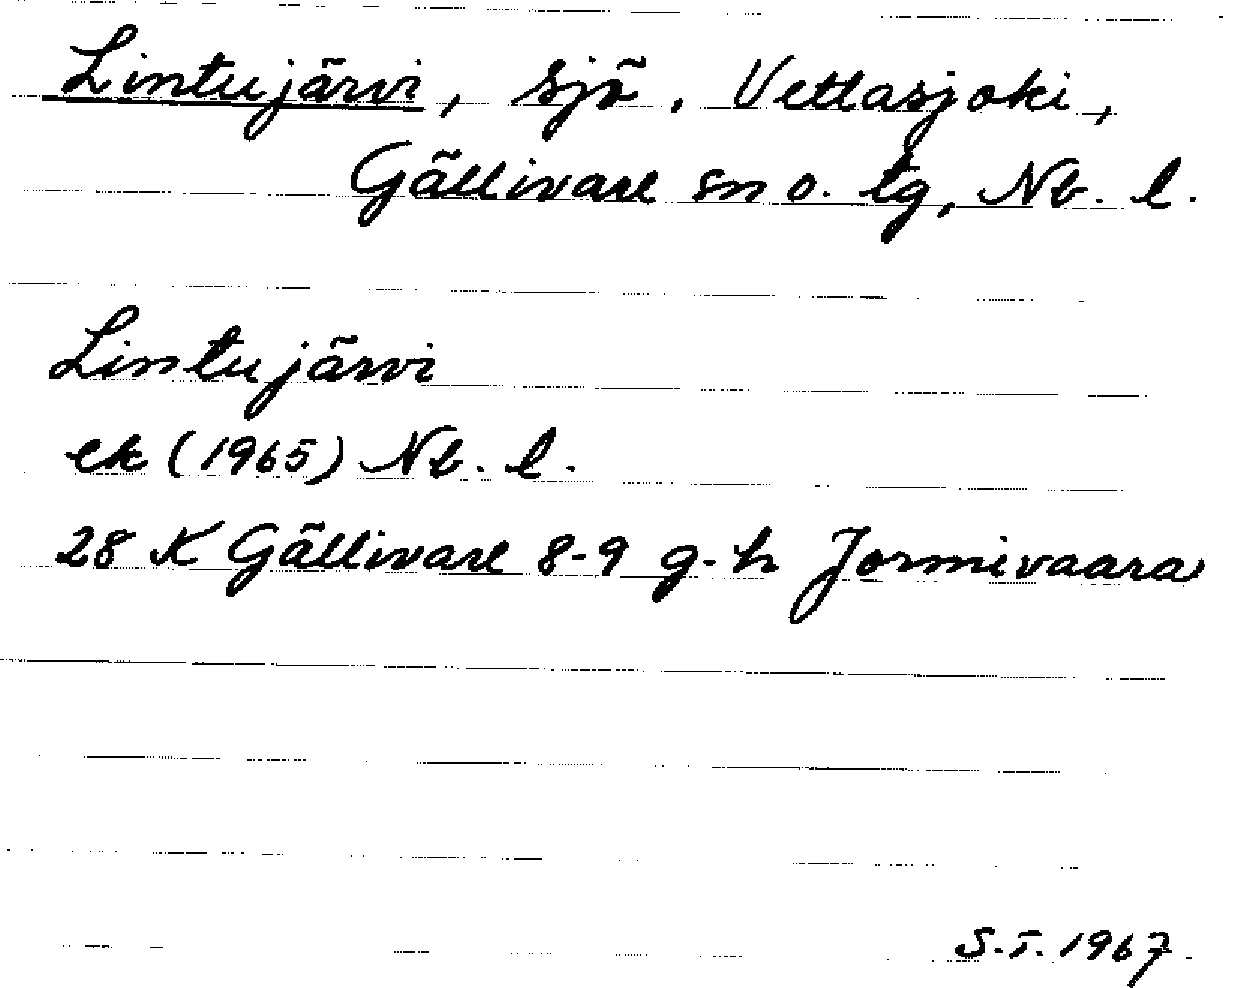 Lintujärvi, sjö, Vettasjoki,
Gällivare sn o. tg, Nb. l.
Lintujärvi
ek (1965) Nb. l.
28 K Gällivare 8-9 g-h Jormivaara
S.T. 1967